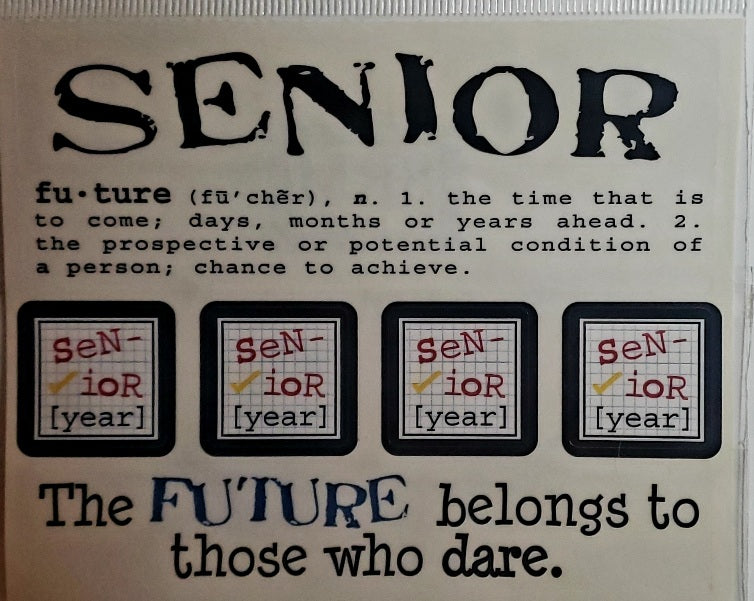 SENIOR
fu•ture (fū'chẽr), n. 1. the time that is
to come; days, months or years ahead. 2.
the prospective or potential condition of
a person; chance to achieve.
seN- seN- seN- seN-
ioR ioR ioR ioR
[year] [year] [year] [year]
The FUTURE belongs to
those who dare.